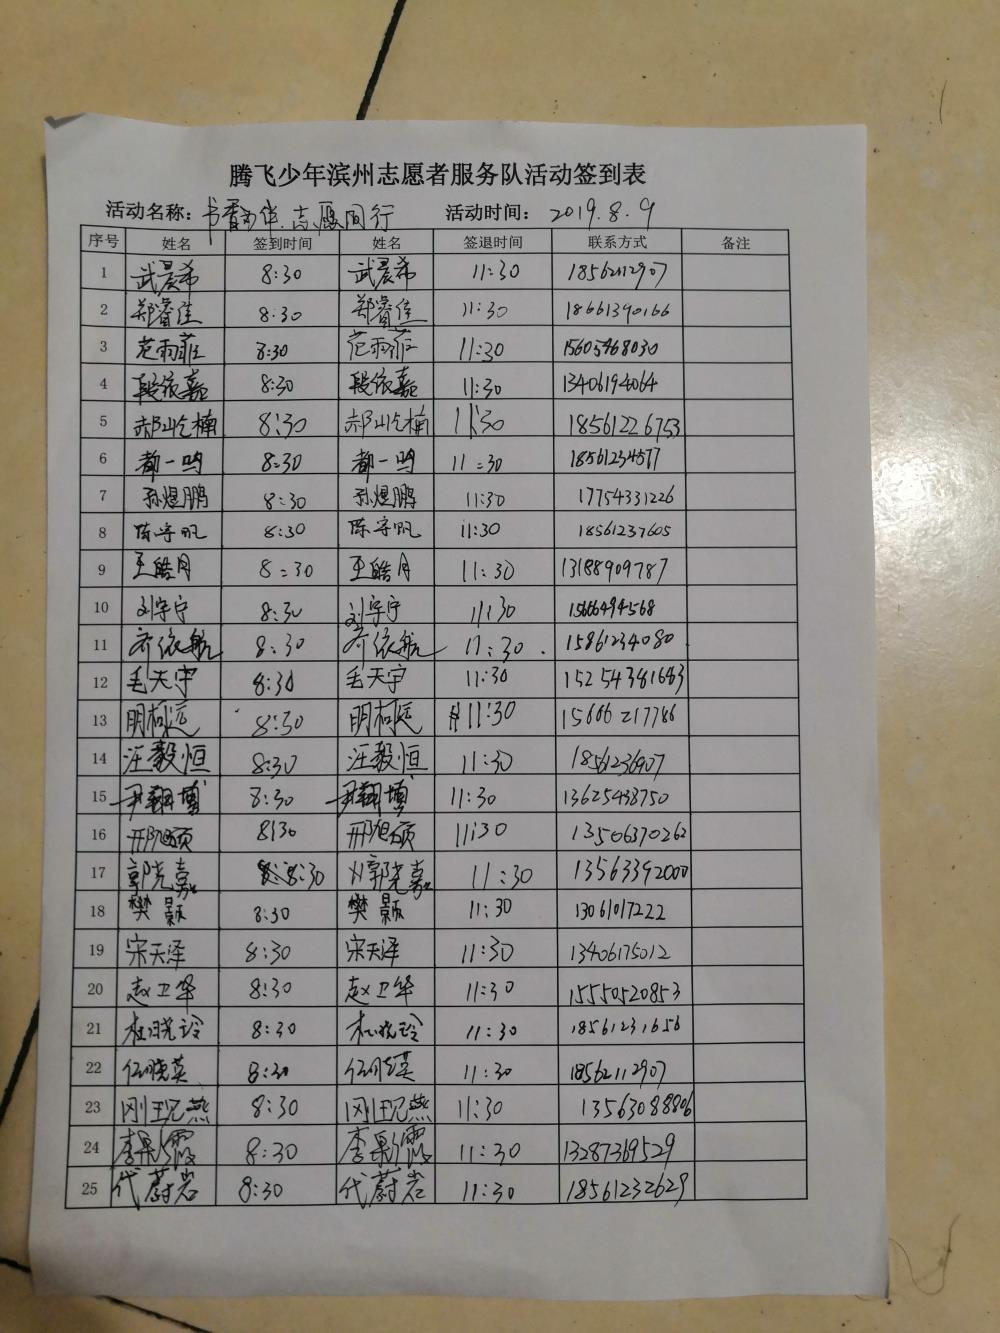 腾飞少年滨州志愿者服务队活动签到表
活动名称: 书香中华.志愿同行 活动时间: 2019.8.9
序号 姓名 签到时间 姓名 签退时间 联系方式 备注
1 武晨希 8:30 武晨希 11:30 18562112907
2 郑睿佳 8:30 郑睿佳 11:30 18661390166
3 范雨菲 8:30 范雨菲 11:30 15605468030
4 段依嘉 8:30 段依嘉 11:30 13406194064
5 郝屹楠 8:30 郝屹楠 11:30 18561226753
6 都一鸣 8:30 都一鸣 11:30 18561234577
7 孙煜鹏 8:30 孙煜鹏 11:30 17754331226
8 陈宇帆 8:30 陈宇帆 11:30 18561237605
9 王皓月 8:30 王皓月 11:30 13188909787
10 刘宇宁 8:30 刘宇宁 11:30 15666494568
11 齐依航 8:30 齐依航 11:30 15861234080
12 毛天宇 8:30 毛天宇 11:30 15254381683
13 明柯远 8:30 明柯远 11:30 15666217786
14 汪毅恒 8:30 汪毅恒 11:30 18561236907
15 尹翔博 8:30 尹翔博 11:30 13625433750
16 邢旭硕 8:30 邢旭硕 11:30 13506370262
17 郭尧嘉 8:30 郭尧嘉 11:30 13563392000
18 樊颢 8:30 樊颢 11:30 13061017222
19 宋天泽 8:30 宋天泽 11:30 13406175012
20 赵卫华 8:30 赵卫华 11:30 15550520853
21 杜晓玲 8:30 杜晓玲 11:30 18561231656
22 任晓英 8:30 任晓英 11:30 18562112907
23 刚现燕 8:30 刚现燕 11:30 13563088806
24 李彩霞 8:30 李彩霞 11:30 13287369529
25 代蔚岩 8:30 代蔚岩 11:30 18561232629